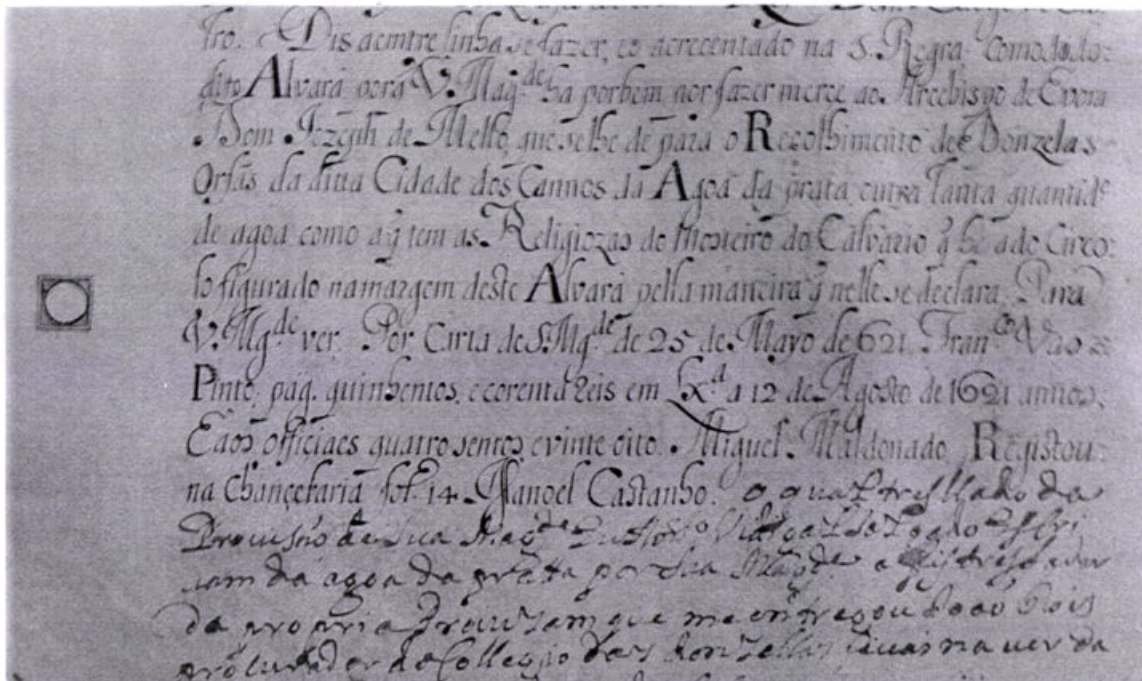 tro. Dis aemtre linha se fazer, eo acrecentado na s. Regra como todo
dito Alvará porá V. Mag.de ha porbem por fazer merce ao Arcebispo de Evora
Dom Iozeph de Mello, que se lhe dé para o Recolhimento de Donzelas
Orfãs da ditta Cidade dos Cannos da Agoa da prata outra tanta quantid.e
de agoa como a q̃ tem as Religiozas do Mosteiro do Calvario q̃ he a do Circo
lo figurado na margem deste Alvará pella maneira q̃ nelle se declara. Pará
V. Mg.de ver. Por Carta de S. Mg.de de 25 de Mayo de 621. Fran.co Vas
Pinto. pag. quinhentos, e corenta Reis em Lx.a a 12 de Agosto de 1621 annos,
E aos officiaes quatrosentos e vinte oito. Miguel Maldonado. Registou
na Chancelaria fol. 14. Manoel Castanho. o qual tresllado da
Provisão de sua Mag.de
vam da agoa da prata por sua Mag.de
da propria Provizam que me entregou João
procurador do Collegio das donzellas